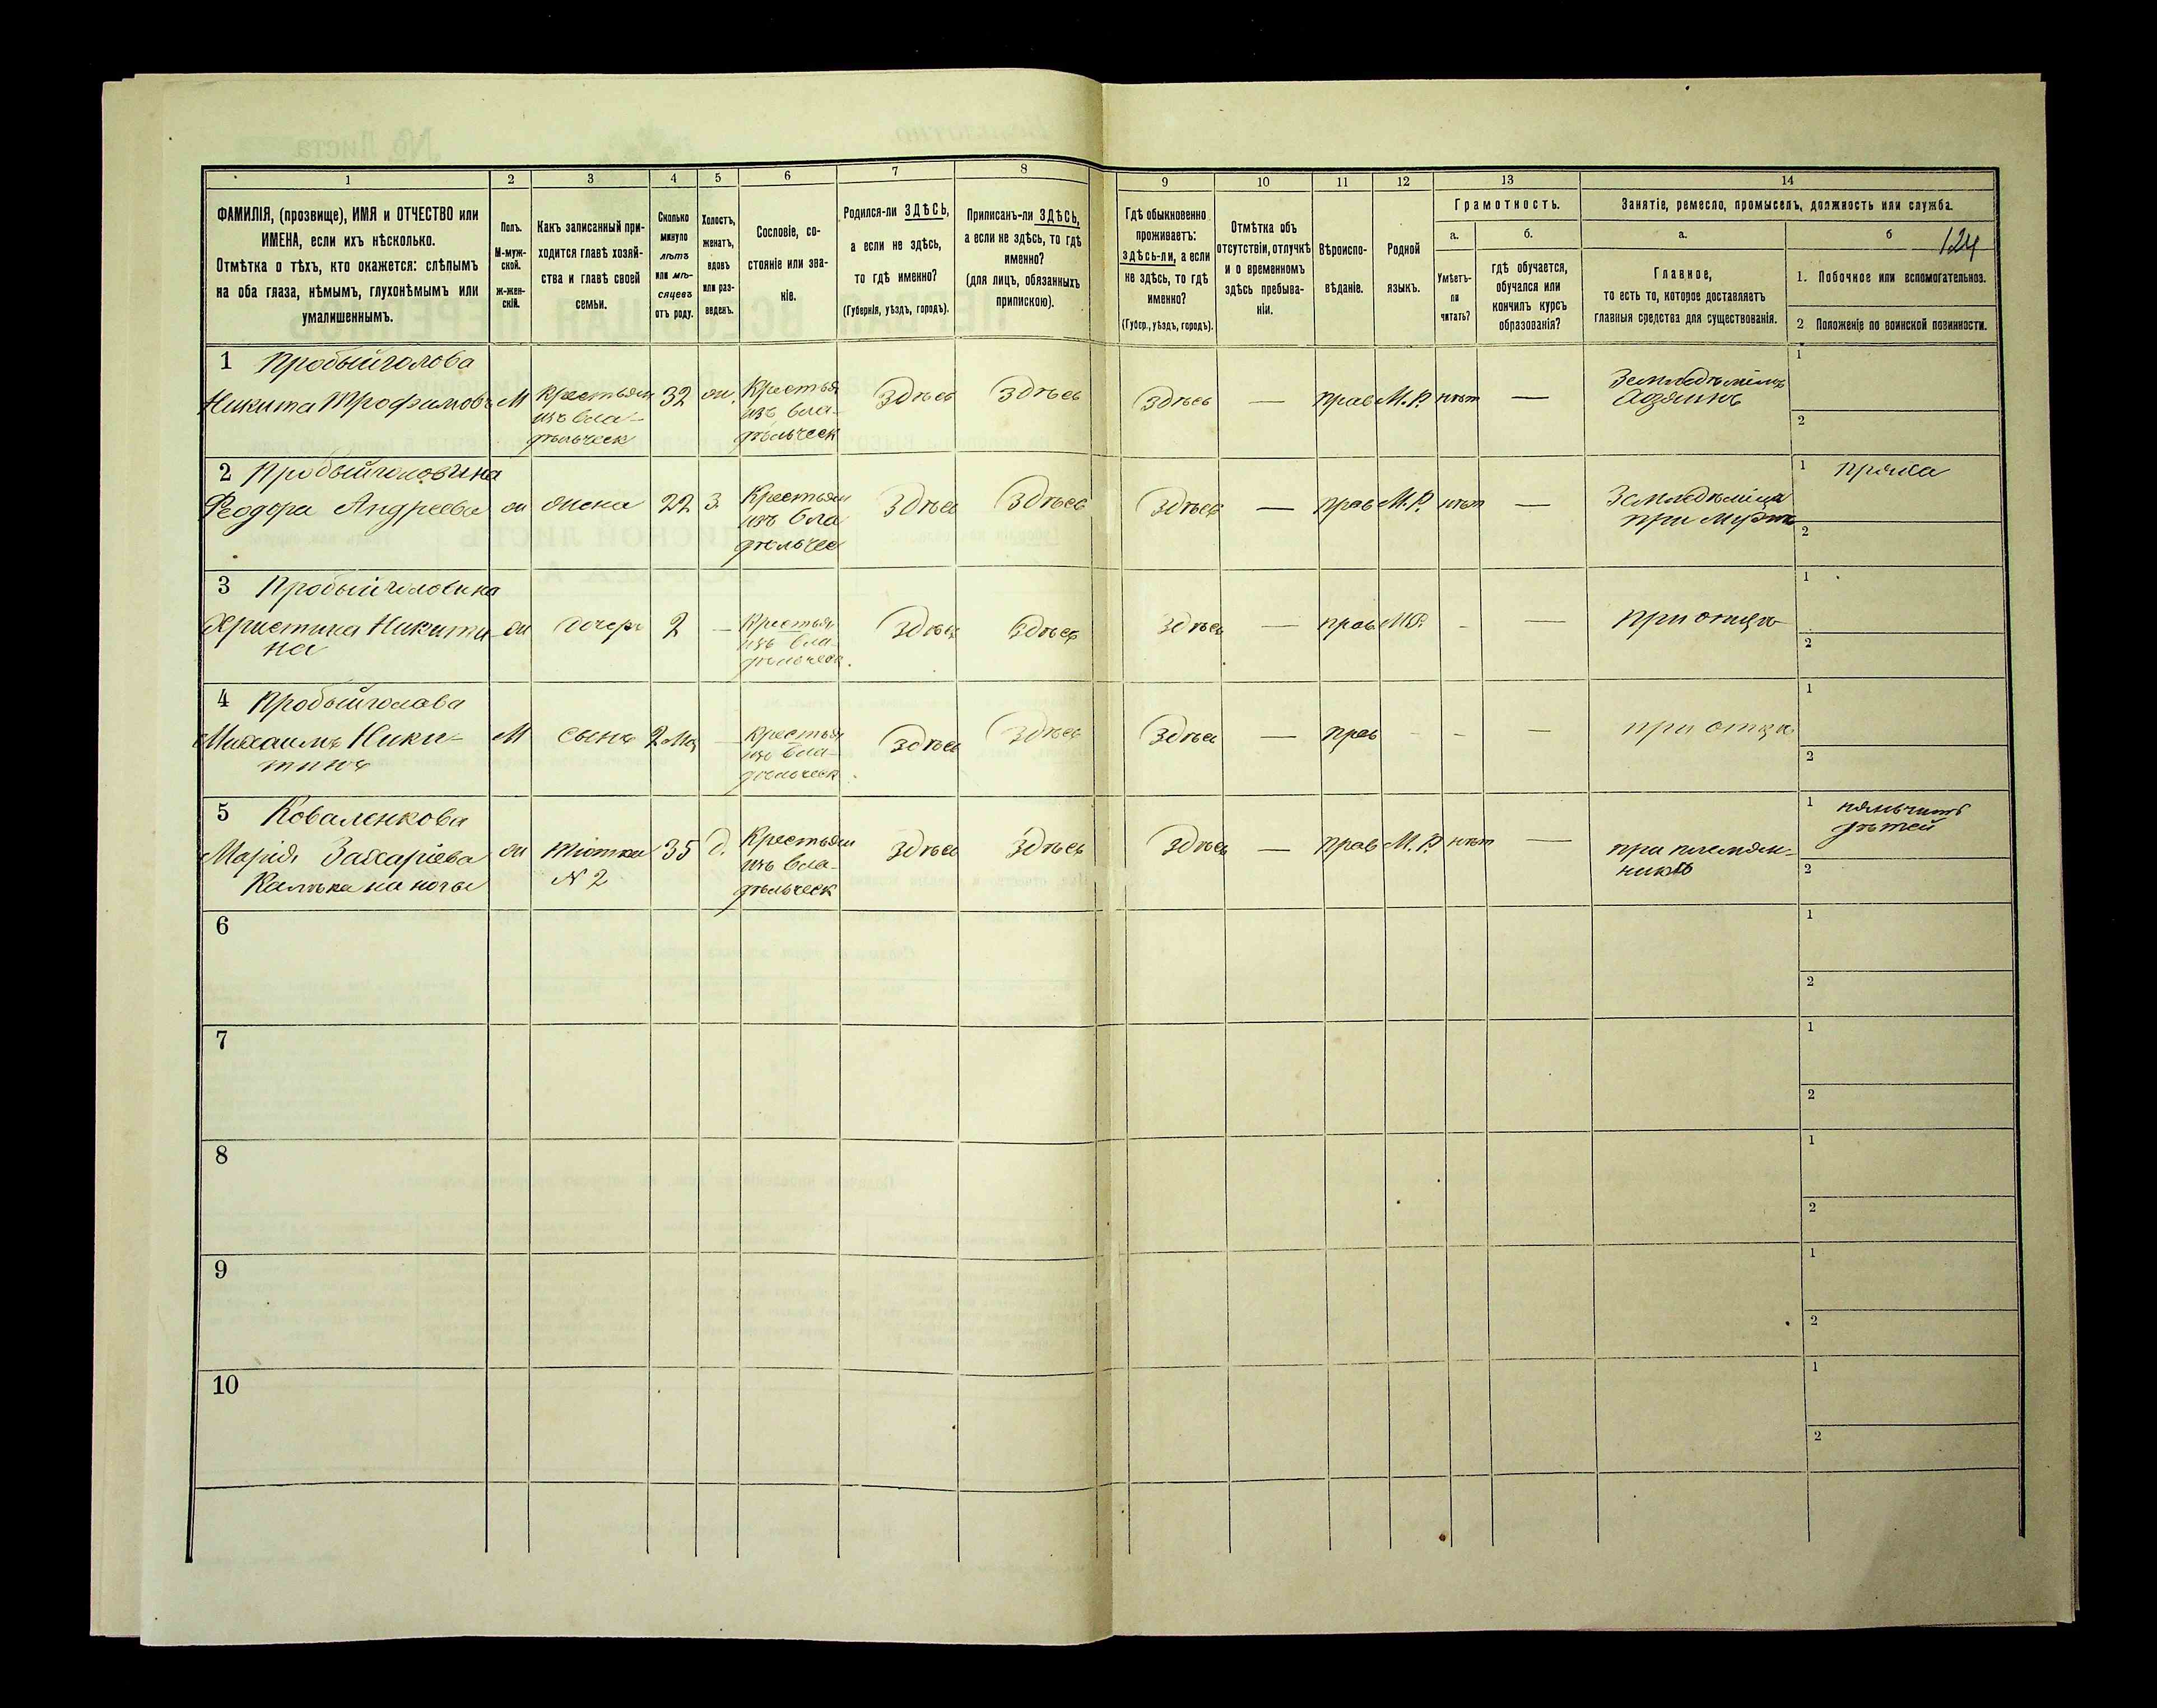 1 2 3 4 5 6 7 8 9 10 11 12 13 14
ФАМИЛІЯ, (прозвище), ИМЯ и ОТЧЕСТВО или
ИМЕНА, если ихъ нѣсколько.
Отмѣтка о тѣхъ, кто окажется: слѣпымъ
на оба глаза, нѣмымъ, глухонѣмымъ или
умалишеннымъ.
Полъ.
М-муж-
ской.
ж-жен-
скій.
Какъ записанный при-
ходится главѣ хозяй-
ства и главѣ своей
семьи.
Сколько
минуло
лѣтъ
или мѣ-
сяцевъ
отъ роду.
Холостъ,
женатъ,
вдовъ
или раз-
веденъ.
Сословіе, со-
стояніе или зва-
ніе.
Родился-ли ЗДѢСЬ,
а если не здѣсь,
то гдѣ именно?
(Губернія, уѣздъ, городъ).
Приписанъ-ли ЗДѢСЬ,
а если не здѣсь, то гдѣ
именно?
(для лицъ, обязанныхъ
припискою).
Гдѣ обыкновенно
проживаетъ:
здѣсь-ли, а если
не здѣсь, то гдѣ
именно?
(Губер., уѣздъ, городъ).
Отмѣтка объ
отсутствіи, отлучкѣ
и о временномъ
здѣсь пребыва-
ніи.
Вѣроиспо-
вѣданіе.
Родной
языкъ.
Грамотность.
а.
Умѣетъ-
ли
читать?
б.
гдѣ обучается,
обучался или
кончилъ курсъ
образованія?
Занятіе, ремесло, промыселъ, должность или служба.
а.
Главное,
то есть то, которое доставляетъ
главныя средства для существованія.
б
124
1. Побочное или вспомогательное.
2 Положеніе по воинской повинности.
1 Пробыйголова
Никита Трофимовъ М Крестьян 32 ж. Крестья Здѣсь Здѣсь Здѣсь — прав М.Р. нѣт — Земледѣлецъ 1
изъ вла- изъ вла- Хозяинъ
дѣльческ дѣльческ 2
2 Пробыйголовина 1 пряха
Феодора Андреева ж жена 22 З. Крестьян Здѣсь Здѣсь Здѣсь — прав М.Р. нѣт — Земледѣлица
изъ вла при мужѣ
дѣльчес 2
3 Пробыйголовина 1
Христина Никити- ж дочерь 2 — Крестья Здѣсь Здѣсь Здѣсь — прав М.Р. - — при отцѣ
на изъ вла-
дѣльческ. 2
4 Пробыйголова 1
Михаилъ Ники- М сынъ 2 мц — Крестья Здѣсь Здѣсь Здѣсь — прав - - — при отцѣ
тинъ изъ вла-
дѣльческ 2
5 Коваленкова 1 няньчитъ
дѣтей
Марія Захаріева ж тютка 35 д. Крестьян Здѣсь Здѣсь Здѣсь — прав М.Р. нѣт — при племян-
Калѣка на ногы N 2 изъ вла- никѣ
дѣльческ 2
6 1
2
7 1
2
8 1
2
9 1
2
10 1
2